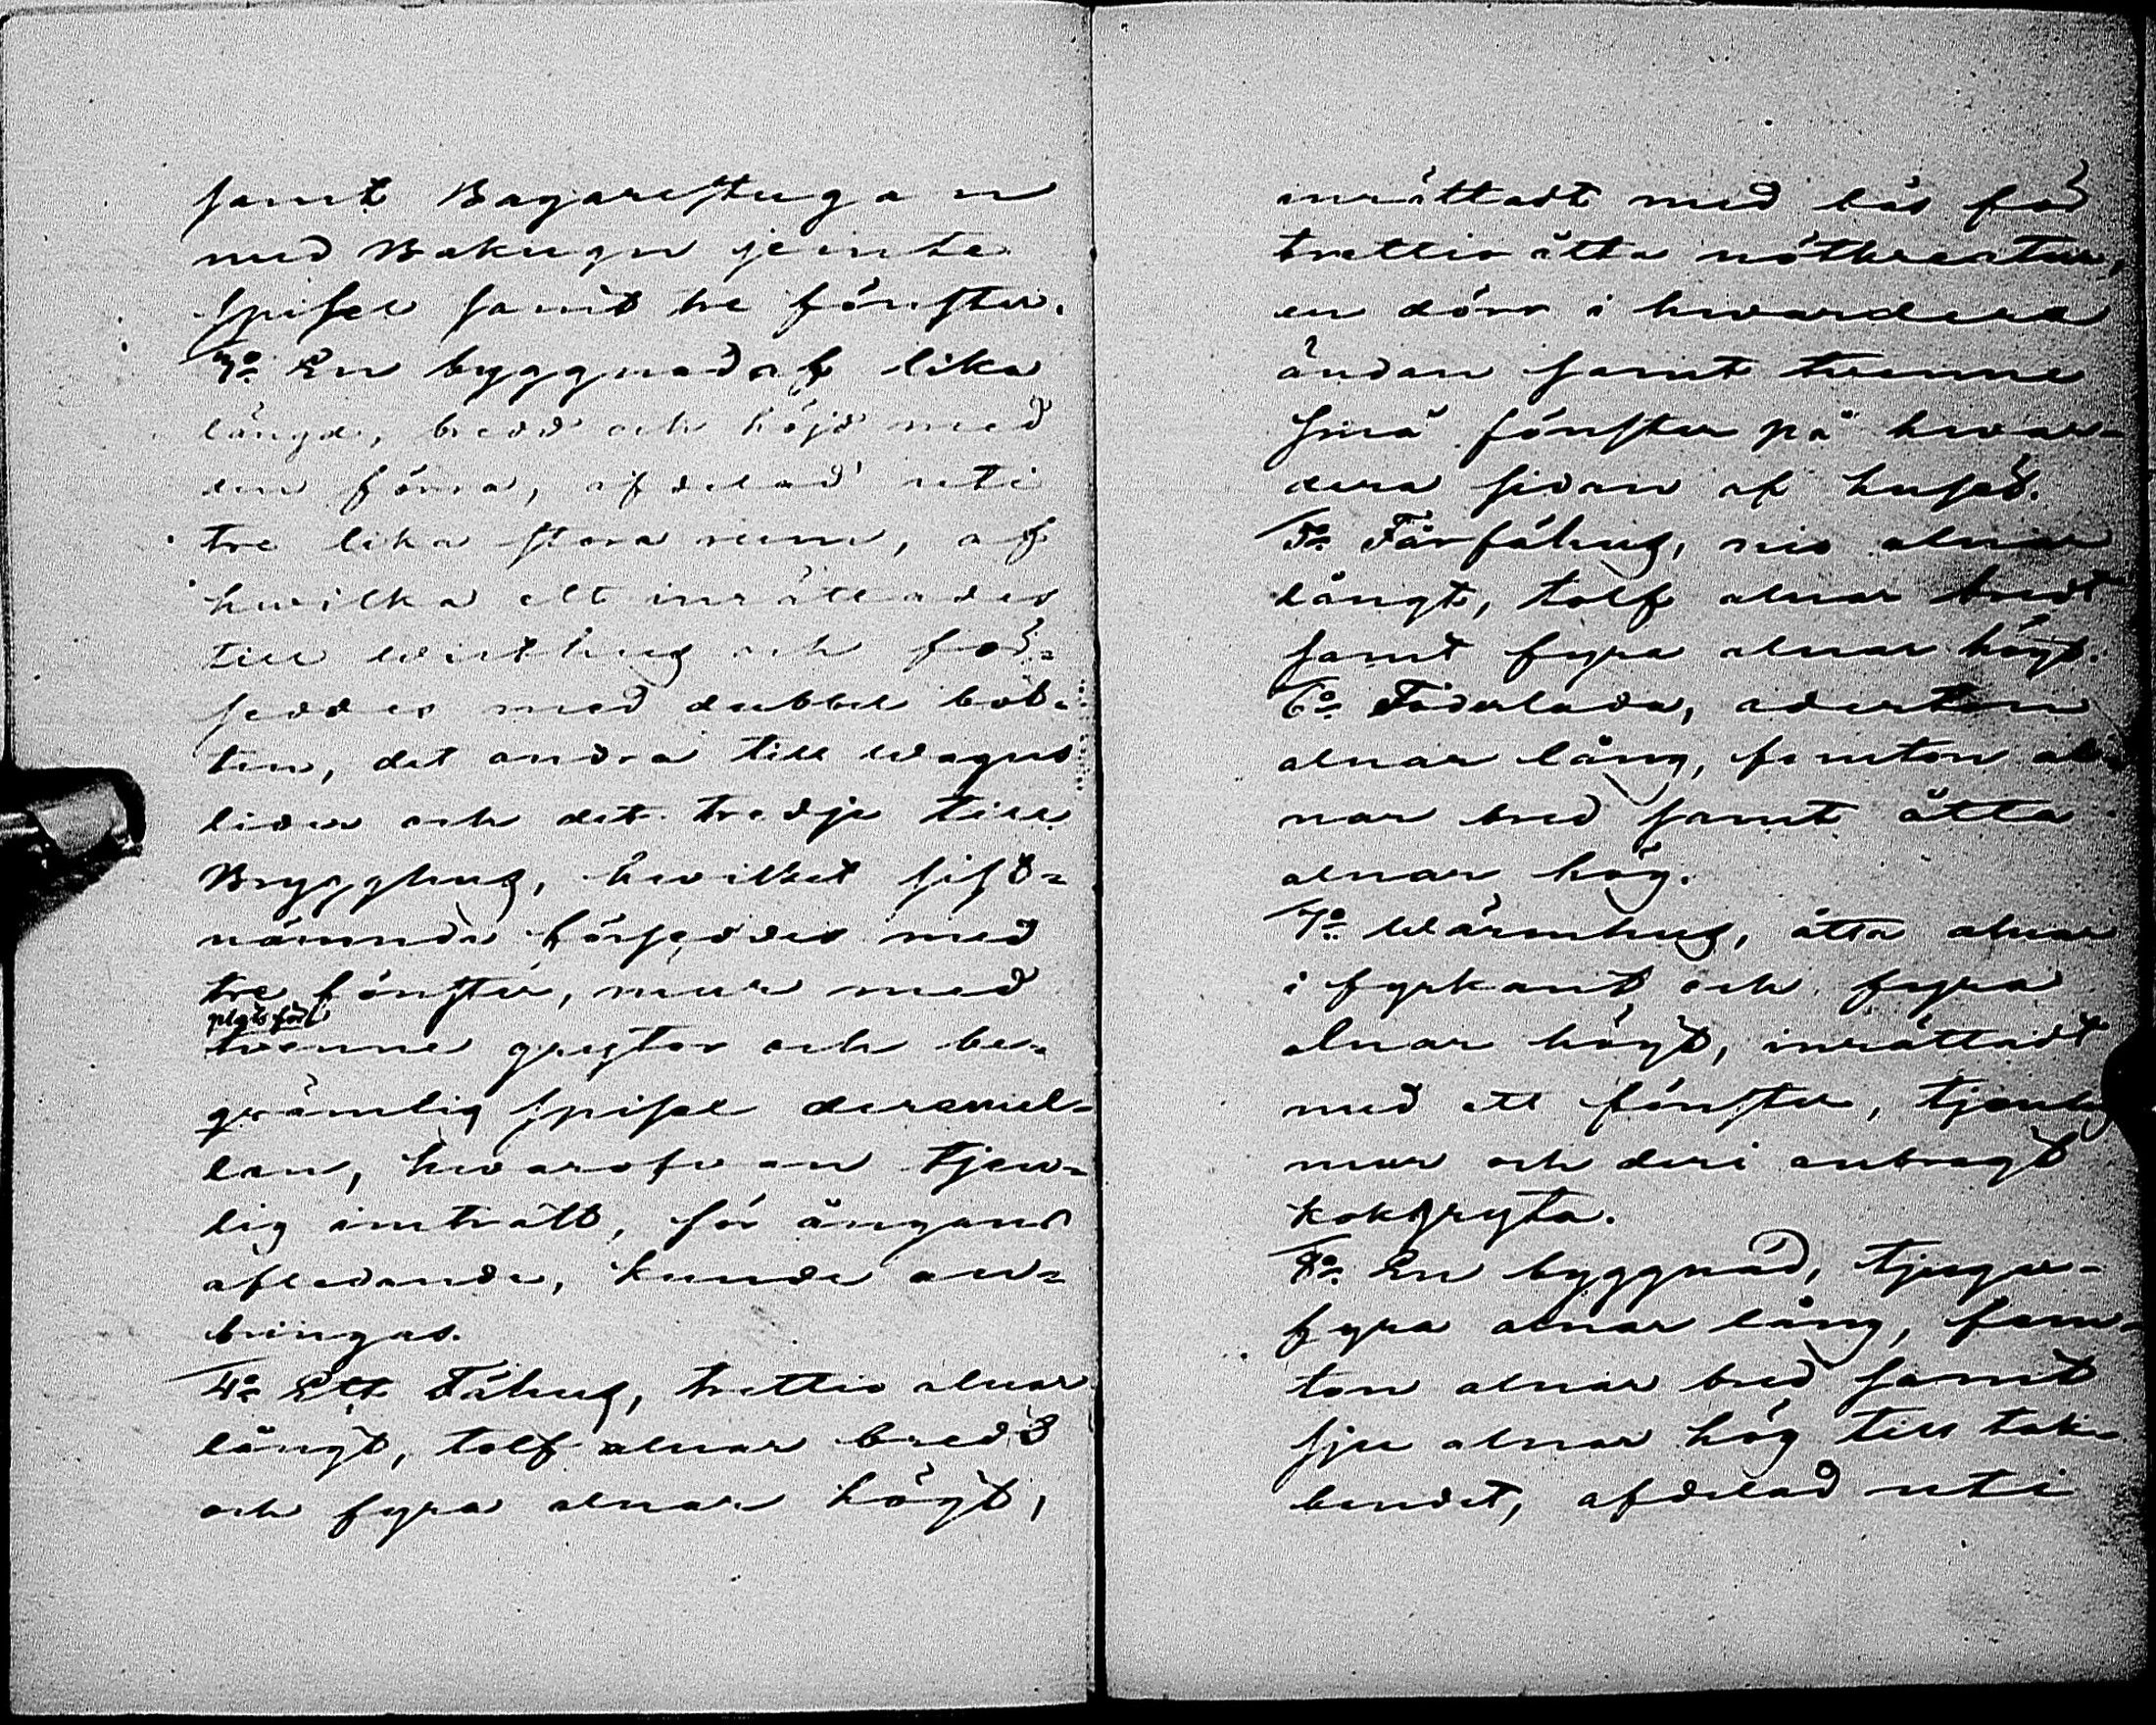 samt Bagarestugan
med Bakugn jemte
Spisel samt tre fönster.
3:o En byggnad af lika
längd, bredd och höjd med
den förra, afdelad uti
tre lika stora rum, af
hwilka ett inrättades
till wisthus och för-
seddes med dubbel bot-
ten, det andra till wagns
lider och det tredje till
Brygghus, hwilket sist-
nämnda förseddes med
tre fönster, mur med
plats för
twenne grytor och be-
qwämlig Spisel deremel-
lan, hwarofwan tjen-
lig inrätt, för ångans
afledande, kunde an-
bringas.
4:o Ett Fähus, trettio alnar
långt, tolf alnar bredt
och fyra alnar högt,
inrättadt med bås för
trettioåtta nötkreatur,
en dörr i hwardera
ändan samt twenne
Små fönster på hwar-
dera sidan af huset.
5:o Fårfähus, nio alnar
långt, tolf alnar bredt
samt fyra alnar högt.
6:o Foderlada, aderton
alnar lång, femton al-
nar bred samt åtta
alnar hög.
7:o Wärmhus, åtta alnar
i fyrkant och fyra
alnar högt, inrättadt
med ett fönster, tjenlig
mur och deri anbragt
kokgryta.
8:o En byggnad, tjugu-
fyra alnar lång, fem-
ton alnar bred samt
sju alnar hög till tak-
bandet, afdelad uti